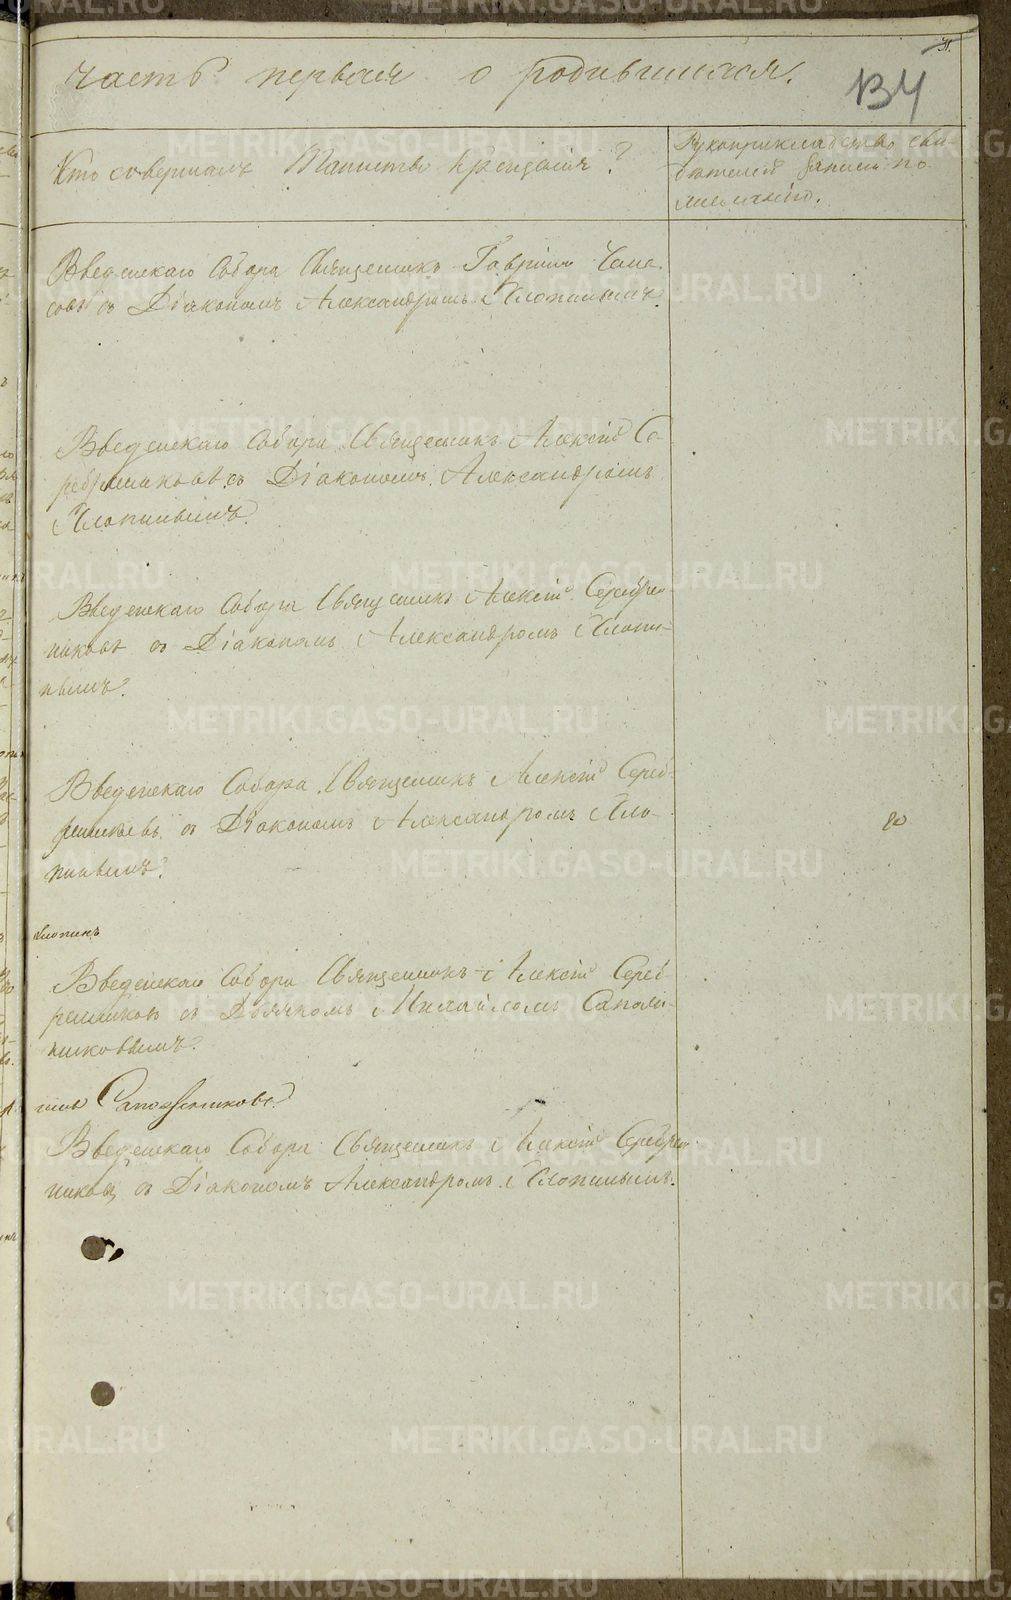 часть первая о родившихся.
134
Кто совершалъ Таинство Крещенія?
Рукоприкладство сви-
дѣтелей записи по
желанію.
Введенскаго Собора Священникъ Гавріилъ
совъ съ Діакономъ Александромъ Хлопинымъ.
Введенскаго Собора Священникъ Алексій Се-
ребренниковъ съ Діакономъ Александромъ
Хлопинымъ.
Введенскаго Собора Священникъ Алексій Серебрен-
никовъ съ Діакономъ Александромъ Хлопи-
нымъ.
Введенскаго Собора Священникъ Алексій Сереб-
ренниковъ съ Діакономъ Александромъ Хло-
пинымъ.
Хлопинъ
Введенскаго Собора Священникъ Алексій Сереб-
ренниковъ съ Дьячкомъ Михайломъ Сапож-
никовымъ.
Сапожниковъ
Введенскаго Собора Священникъ Алексій Серебрен
никовъ съ Діакономъ Александромъ Хлопинымъ.
METRIKI.GASO-URAL.RU